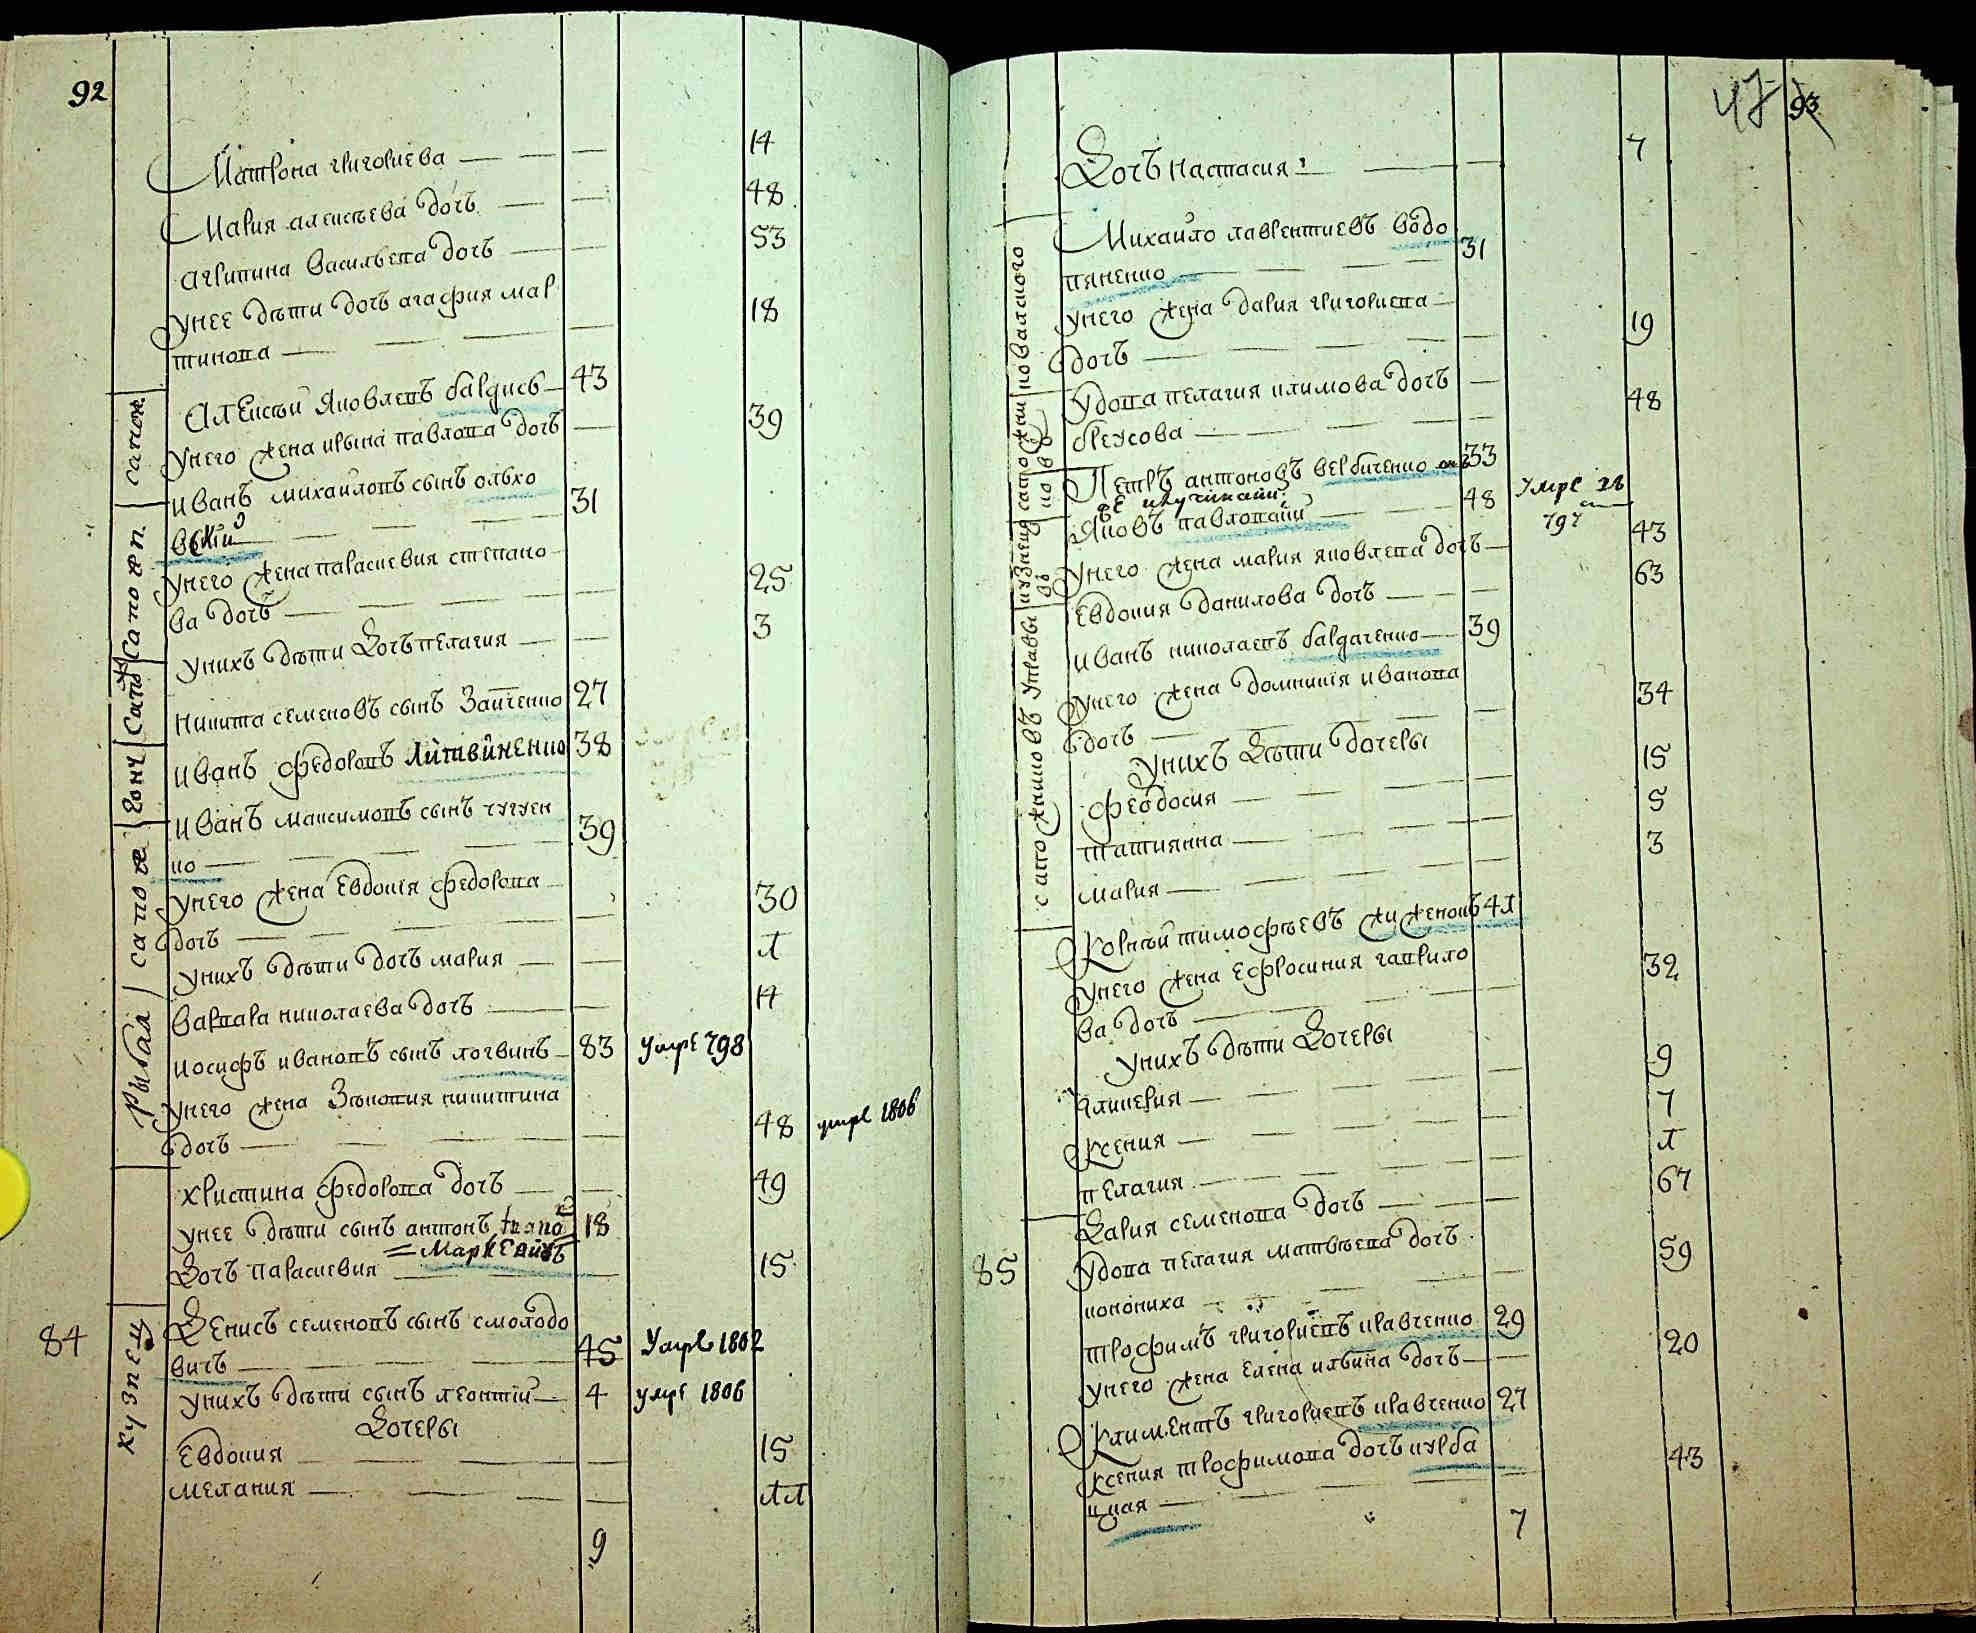 92
Матрона григориева 14
Мария алексѣева дочь 48
агрипина васильева дочь 53
унее дѣти дочь агафия мар
тинова 18
сапож.
Алексѣй яковлевъ бардисъ 43
унего жена ирына павлова дочь 39
иванъ михайловъ сынъ ольхо
вский 31
сапож п.
унего жена параскевия степано
ва дочь 25
унихъ дѣти дочь пелагия 3
сапо
никита семеновъ сынъ зайченко 27
гонч
иванъ федоровъ литвиненко 38
иванъ максимовъ сынъ чугуен
ко 39
сапож
унего жена евдокия федорова
дочь 30
унихъ дѣти дочь мария 1
варвара николаева дочь 14
рыбал
иосифъ ивановъ сынъ логвинъ 83 умре 798
унего жена зѣновия никитина
дочь 48 умре 1806
христина федорова дочь 49
унее дѣти сынъ антонъ 18
дочь параскевия 15
84
кузнец
денисъ семеновъ сынъ смолодо
вичъ 45 умре 1802
унихъ дѣти сынъ леонтий 4 умре 1806
дочеры
евдокия 15
мелания 11
9
47 93
дочь настасия 7
Михайло лаврентиевъ водо
пяненко 31
ковалского
унего жена дария григориева
дочь 19
удова пелагия климова дочь 48
белусова
Петръ антоновъ вербиченко 33
яковъ павловъ 48 умре 797
кузнец
унего жена мария яковлева дочь 43
евдокия данилова дочь 63
иванъ николаевъ бардаченко 39
унего жена домникия иванова
дочь 34
сапожниковъ управы
унихъ дѣти дочеры
феодосия 15
татиянна 5
мария 3
корнѣй тимофѣевъ 41
унего жена ефросиния гаврило
ва дочь 32
унихъ дѣти дочеры
гликерия 9
ксения 7
пелагия 1
дария семенова дочь 67
85
удова пелагия матвѣева дочь 59
конониха
трофимъ григориевъ кравченко 29
унего жена елена ильина дочь 20
климентъ григориевъ кравченко 27
ксения трофимова дочь курба
цкая 43
7